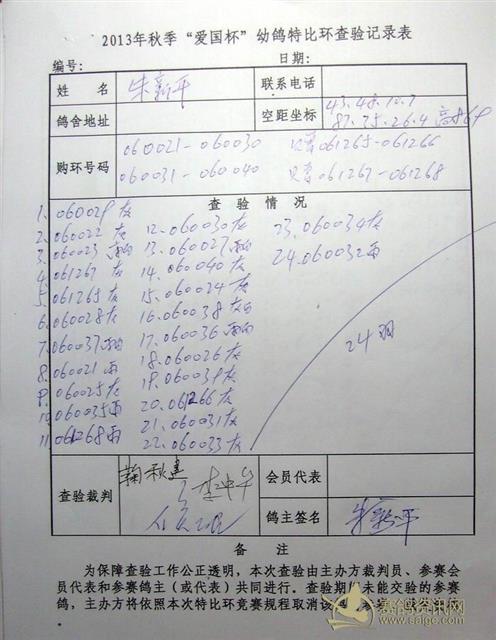 2013年秋季“爱国杯”幼鸽特比环查验记录表
编号： 日期：
姓名 朱新平 联系电话
鸽舍地址 空距坐标 43.48.10.7
87.35.26.4
购环号码 060021-060030 061265-061266
060031-060040 061267-061268
查验情况
1、060029灰 12、060030灰 23、060034灰
2、060022灰 13、060027雨 24、060032雨
3、060023 14、060040灰
4、061267灰 15、060024灰
5、061265灰 16、060038灰
6、060028灰 17、060036
7、060037 18、060026灰
8、060021雨 19、060039灰
9、060025灰 20、061266灰
10、060035雨 21、060031灰
11、061268雨 22、060033灰
24羽
查验裁判 鞠秋逵 会员代表
李中华
鸽主签名 朱新平
备注
为保障查验工作公正透明，本次查验由主办方裁判员、参赛会
员代表和参赛鸽主（或代表）共同进行。查验期未能交验的参赛
鸽，主办方将依照本次特比环竞赛规程取消该
赛鸽资讯网
www.saige.com